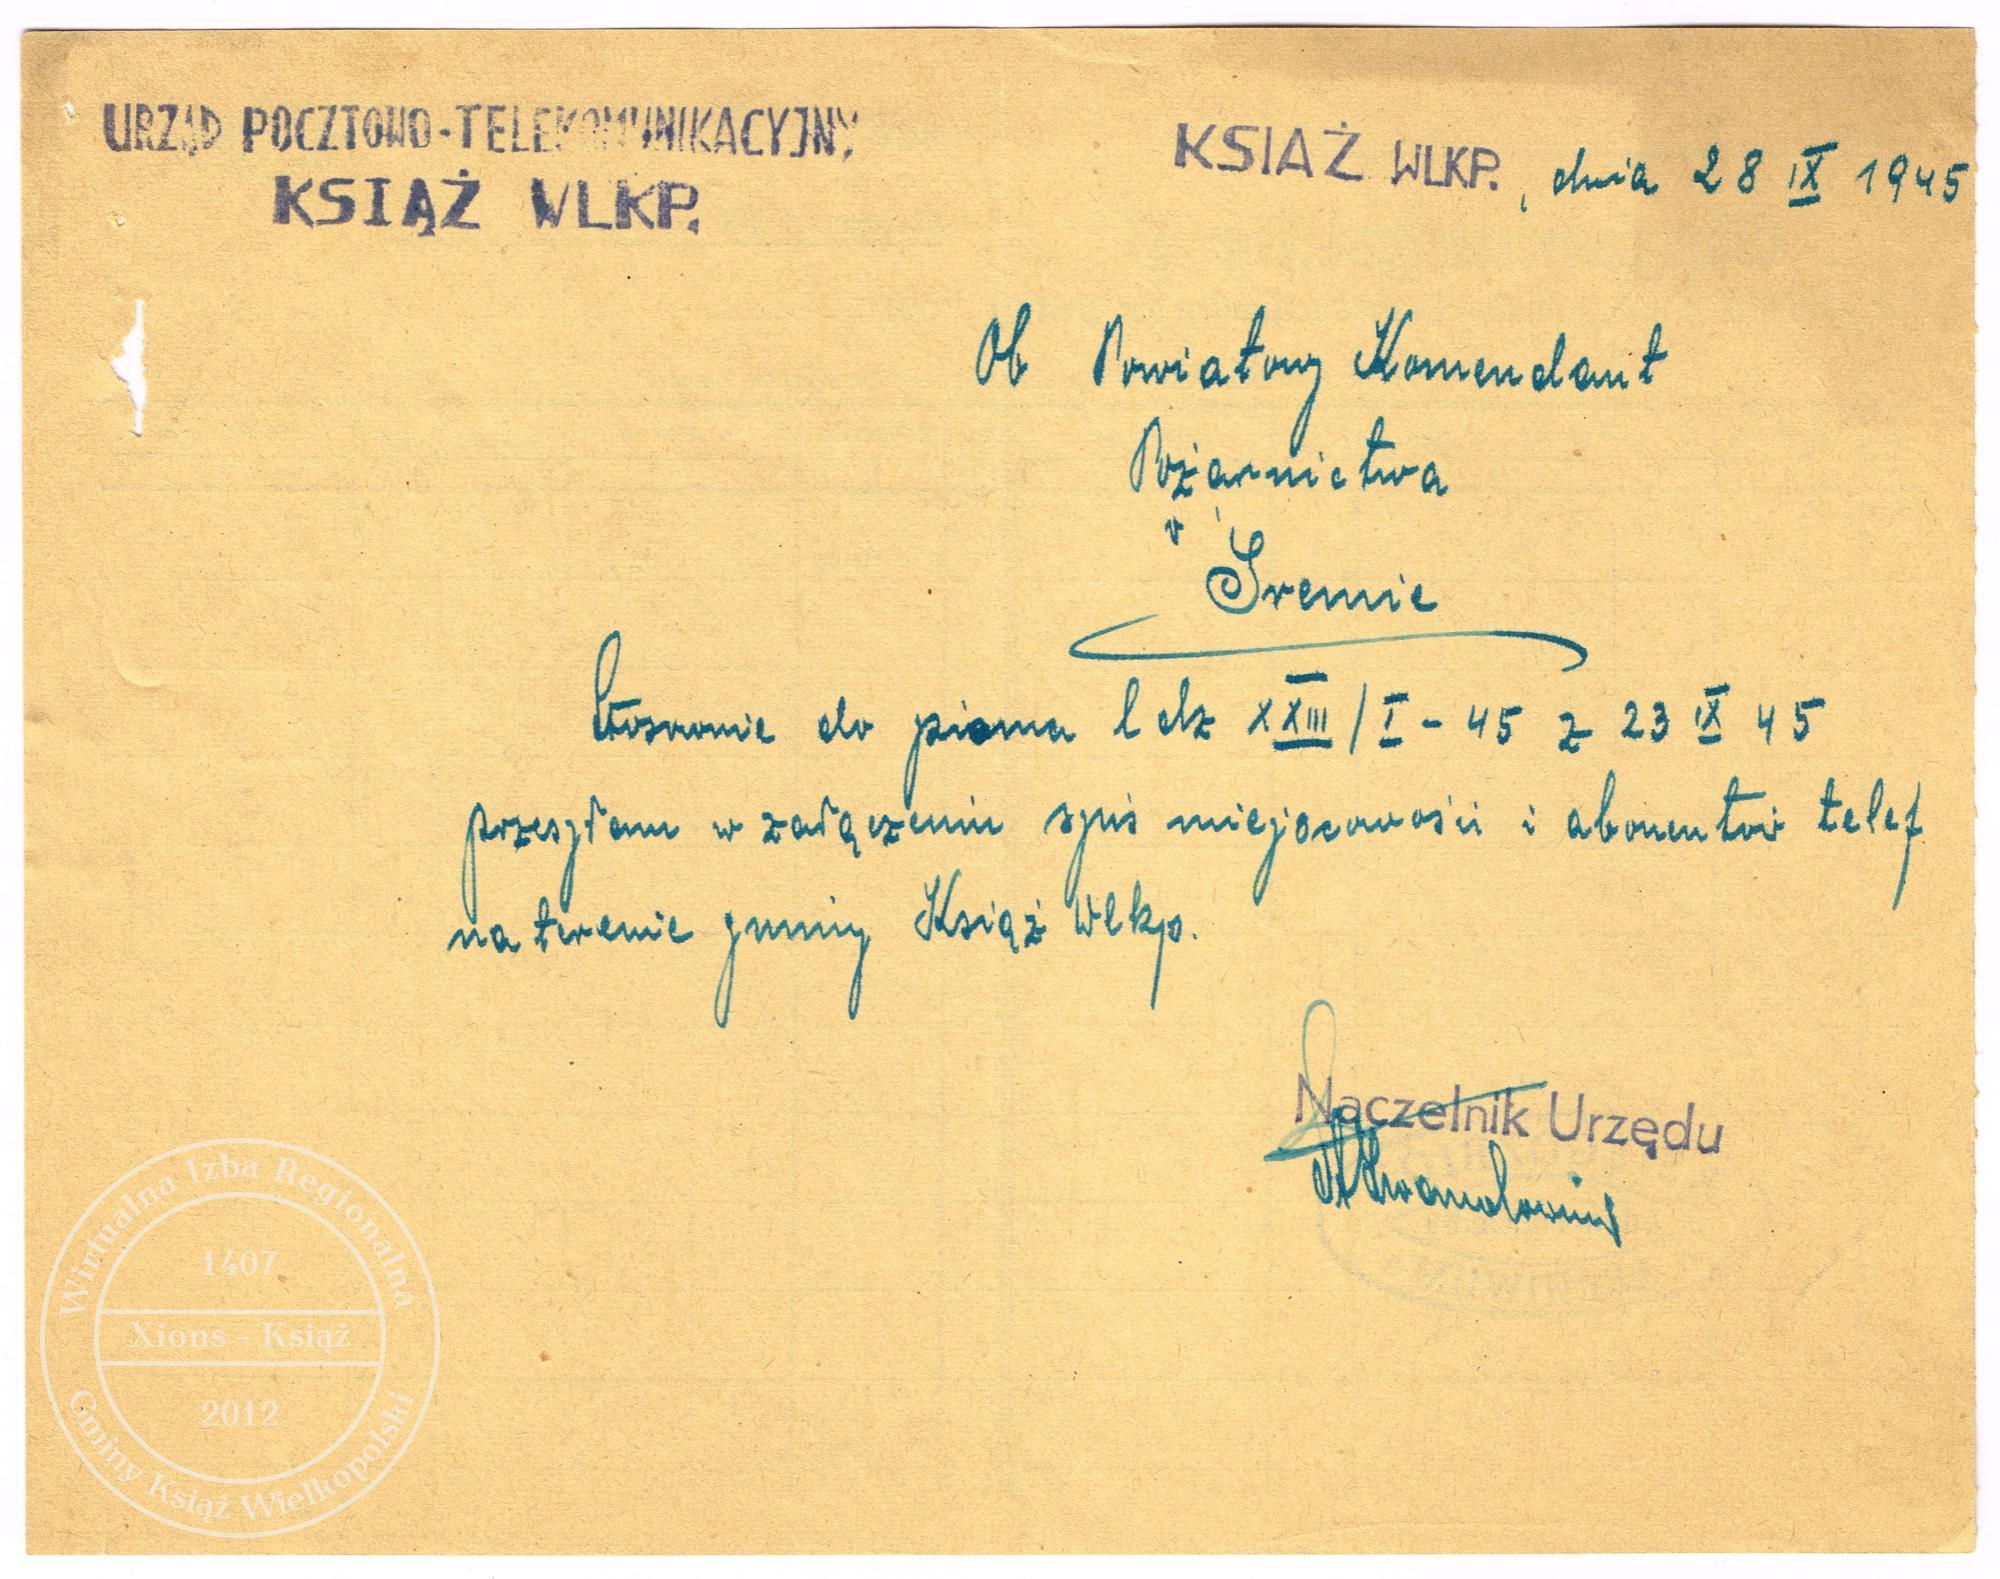 URZĄD POCZTOWO-TELEKOMUNIKACYJNY
KSIĄŻ WLKP.
KSIAŻ WLKP., dnia 28 IX 1945
Ob Powiatowy Komendant
Pożarnictwa
w
Śremie
Stosownie do pisma l dz XXIII/I - 45 z 23 IX 45
przesyłam w załączeniu spis miejscowości i abonentów telef
na terenie gminy Książ Wlkp.
Naczelnik Urzędu
Wirtualna Izba Regionalna
1407
Xions - Książ
2012
Gminy Książ Wielkopolski